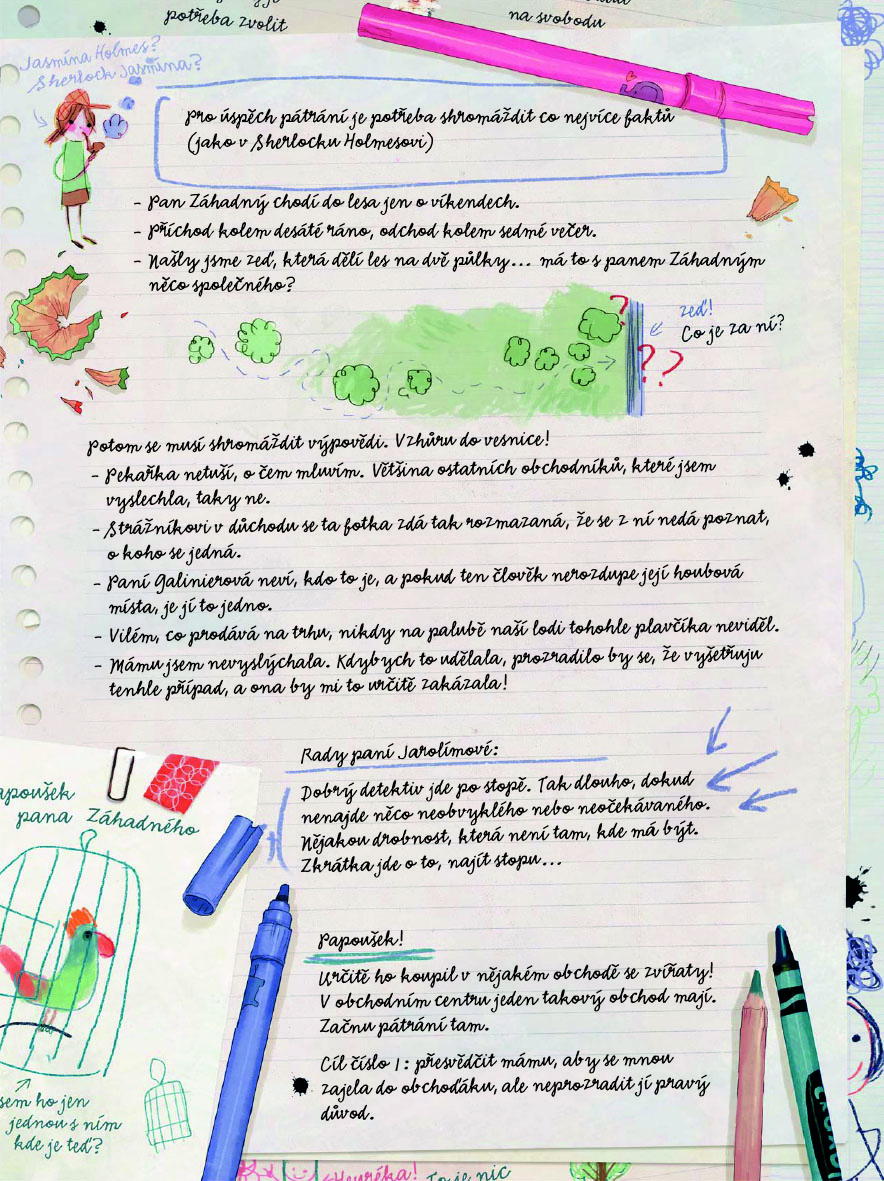 potřeba zvolit
na svobodu
Jasmína Holmes?
Sherlock Jasmína?
Pro úspěch pátrání je potřeba shromáždit co nejvíce faktů
(jako v Sherlocku Holmesovi)
- Pan Záhadný chodí do lesa jen o víkendech.
- Příchod kolem desáté ráno, odchod kolem sedmé večer.
- Našly jsme zeď, která dělí les na dvě půlky... má to s panem Záhadným
něco společného?
?
zeď!
Co je za ní?
??
Potom se musí shromáždit výpovědi. Vzhůru do vesnice!
- Pekařka netuší, o čem mluvím. Většina ostatních obchodníků, které jsem
vyslechla, taky ne.
- Strážníkovi v důchodu se ta fotka zdá tak rozmazaná, že se z ní nedá poznat,
o koho se jedná.
- Paní Galinierová neví, kdo to je, a pokud ten člověk nerozdupe její houbová
místa, je jí to jedno.
- Vilém, co prodává na trhu, nikdy na palubě naší lodi tohohle plavčíka neviděl.
- Mámu jsem nevyslýchala. Kdybych to udělala, prozradilo by se, že vyšetřuju
tenhle případ, a ona by mi to určitě zakázala!
Rady paní Jarolímové:
Dobrý detektiv jde po stopě. Tak dlouho, dokud
nenajde něco neobvyklého nebo neočekávaného.
Nějakou drobnost, která není tam, kde má být.
Zkrátka jde o to, najít stopu...
apoušek
pana Záhadného
Papoušek!
Určitě ho koupil v nějakém obchodě se zvířaty!
V obchodním centru jeden takový obchod mají.
Začnu pátrání tam.
Cíl číslo 1: přesvědčit mámu, aby se mnou
zajela do obchoďáku, ale neprozradit jí pravý
důvod.
sem ho jen
jednou s ním
kde je teď?
Heuréka!
To je nic